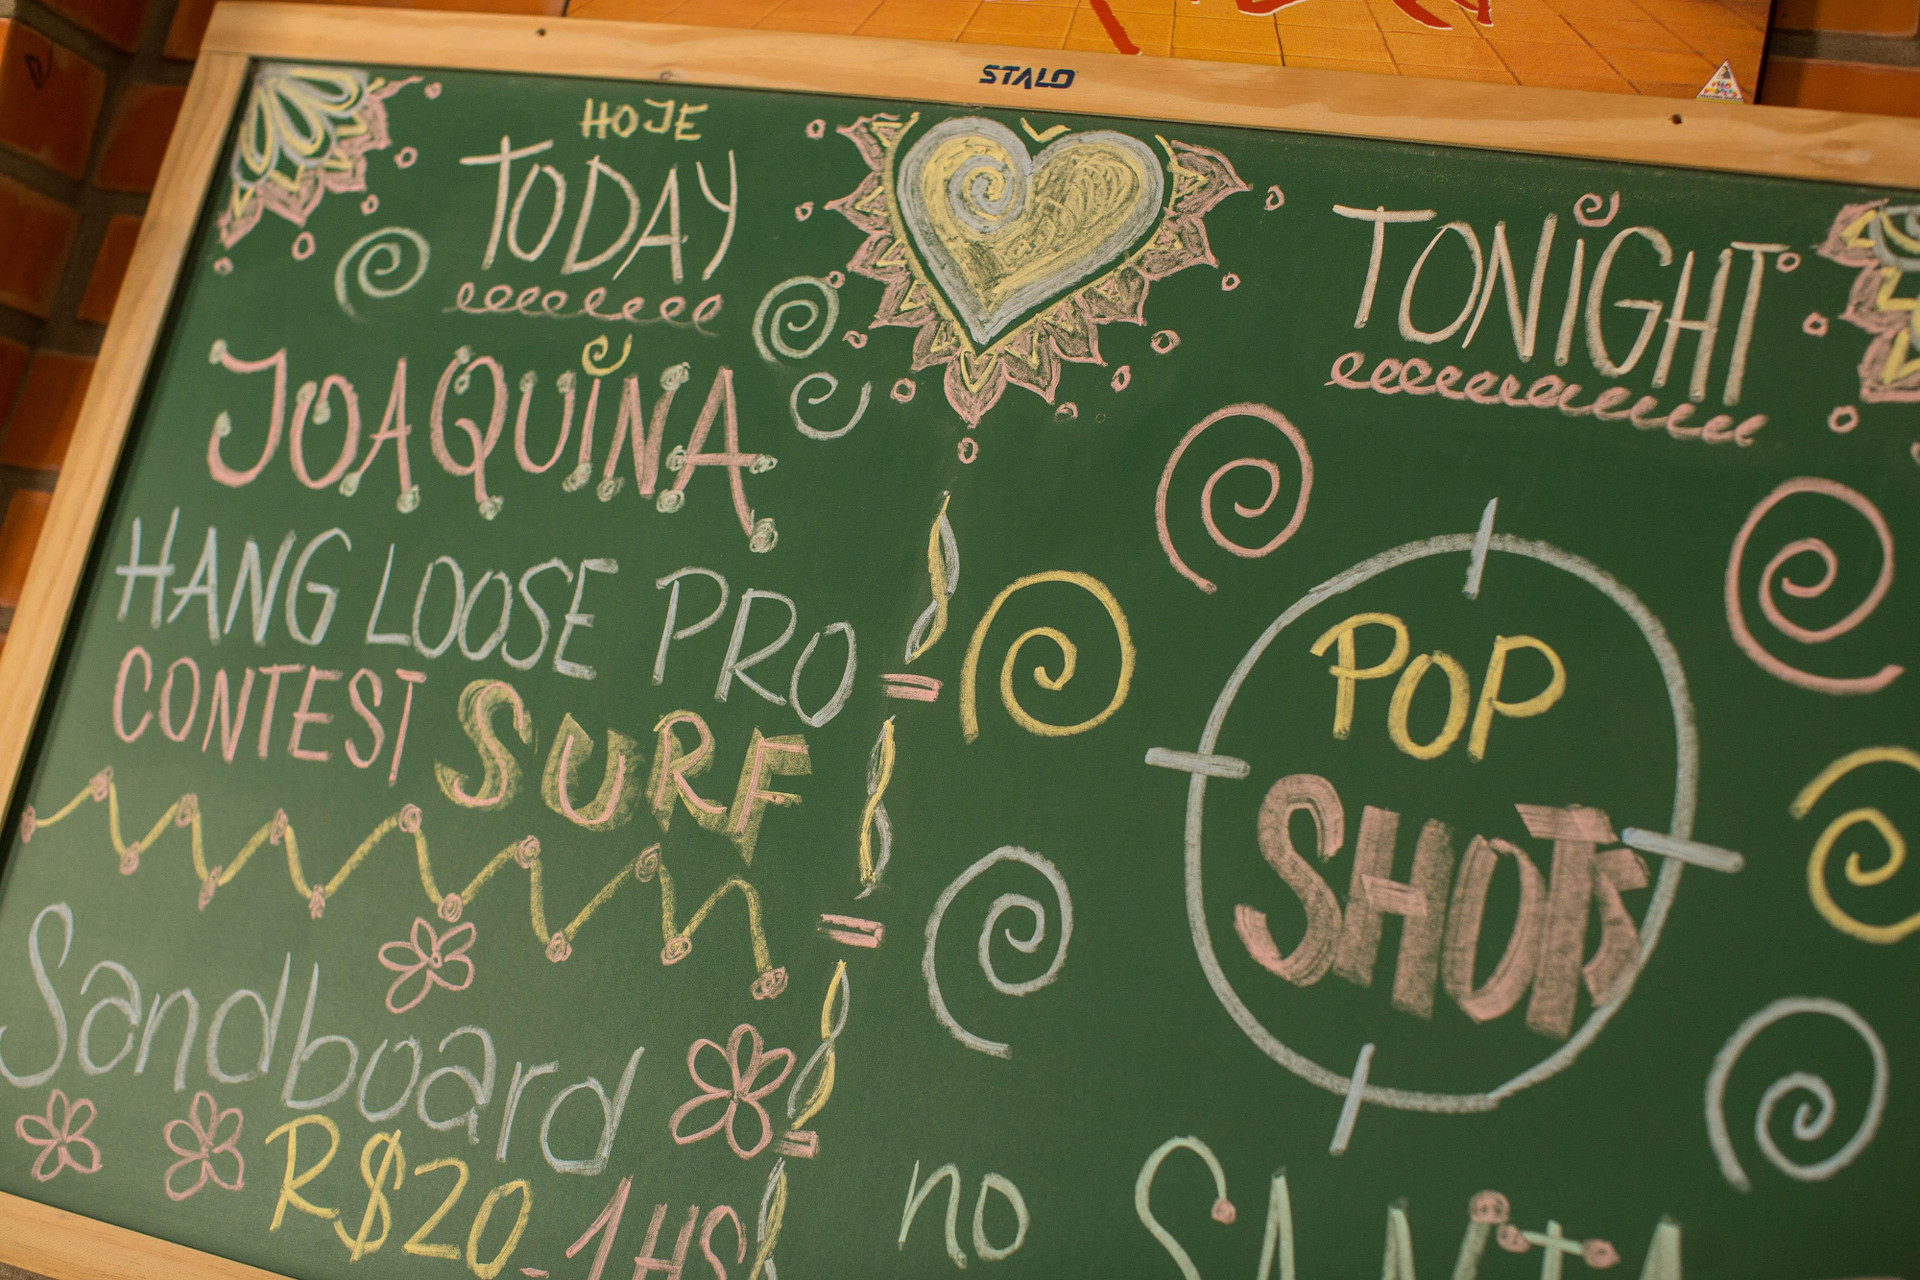 STALO
HOJE
TODAY
JOAQUINA
HANG LOOSE PRO
CONTEST SURF
Sandboard
R$20 - 1HS
TONIGHT
POP
SHOTS
no SANTA